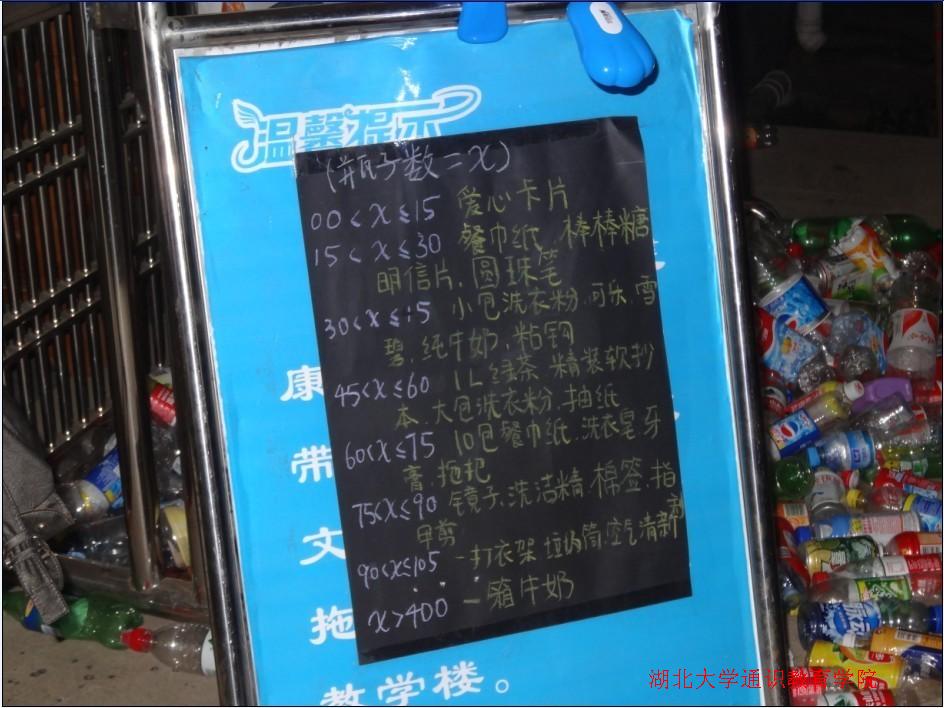 温馨提示
(瓶子数=x)
00<x≤15 爱心卡片
15<x≤30 餐巾纸.棒棒糖
明信片.圆珠笔
30<x≤45 小包洗衣粉.可乐.雪
碧.纯牛奶.粘钩
45<x≤60 1L绿茶 精装软抄
本.大包洗衣粉.抽纸
60<x≤75 10包餐巾纸.洗衣皂.牙
膏.拖把
75<x≤90 镜子.洗洁精.棉签.指
甲剪
90<x≤105 一打衣架.垃圾筒.空气清新剂
x>400 一箱牛奶
康
带
文
拖
教学楼。
湖北大学通识教育学院